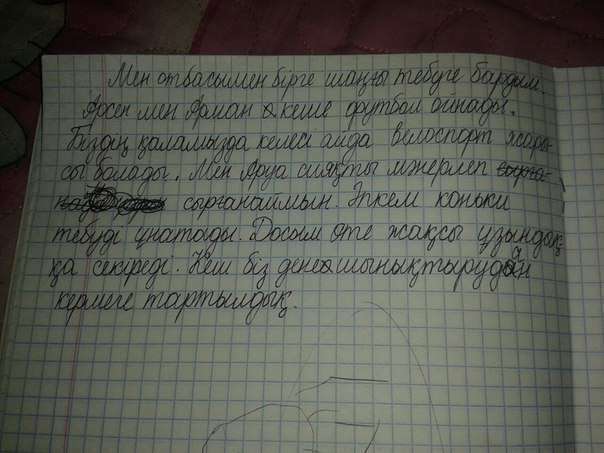 Мен отбасымен бірге шаңғы тебуге бардым.
Арсен мен Арман кеше футбол ойнады.
Біздің қаламызда келесі айда велоспорт жары-
сы болады. Мен Аруа сияқты мәнерлеп сырға-
сырғанаймын. Әпкем коньки
тебуді ұнатады. Досым өте жақсы ұзындық-
қа секіреді. Кеш біз дене шынықтырудан
кермеге тартылдық.